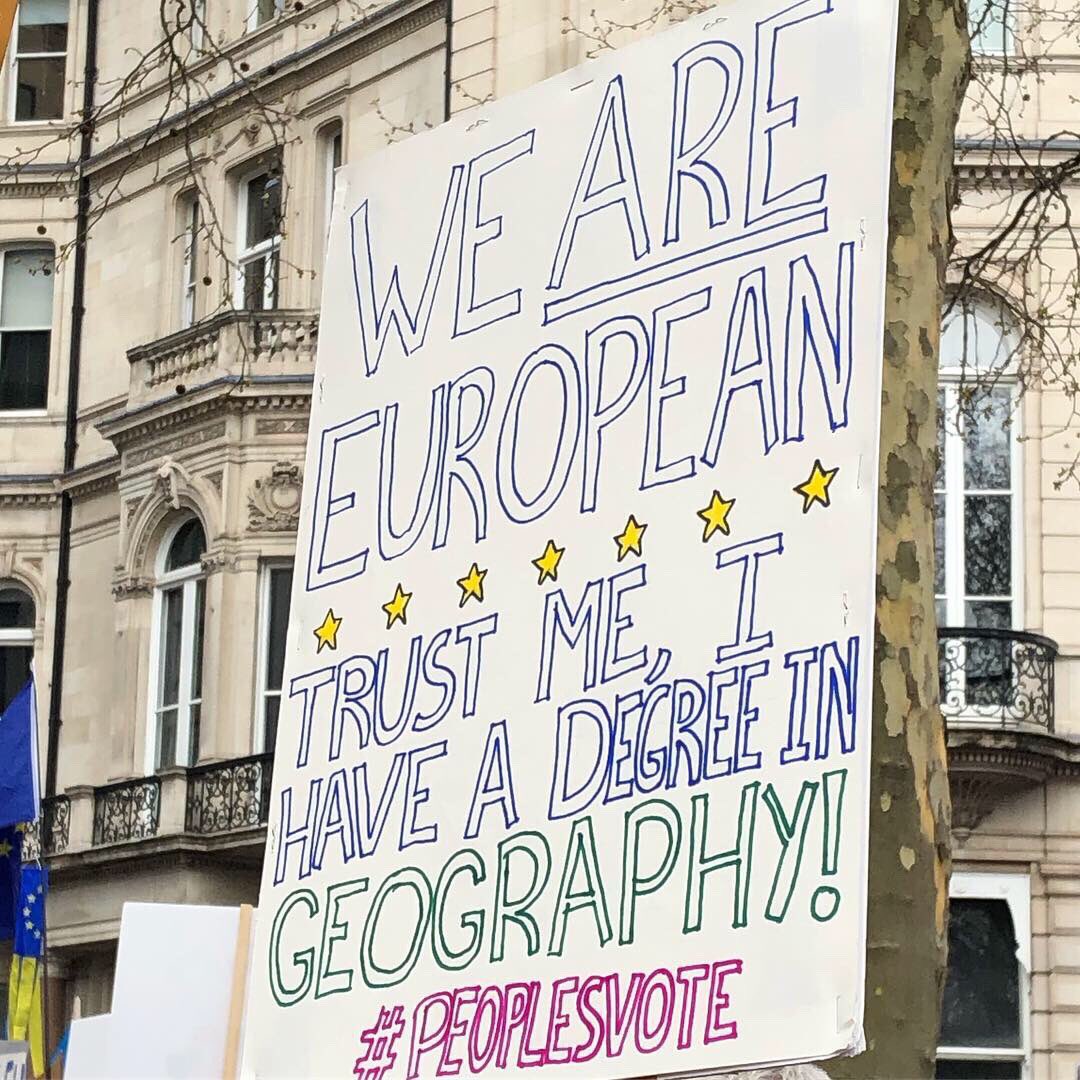 WE ARE
EUROPEAN
TRUST ME, I
HAVE A DEGREE IN
GEOGRAPHY!
#PEOPLESVOTE